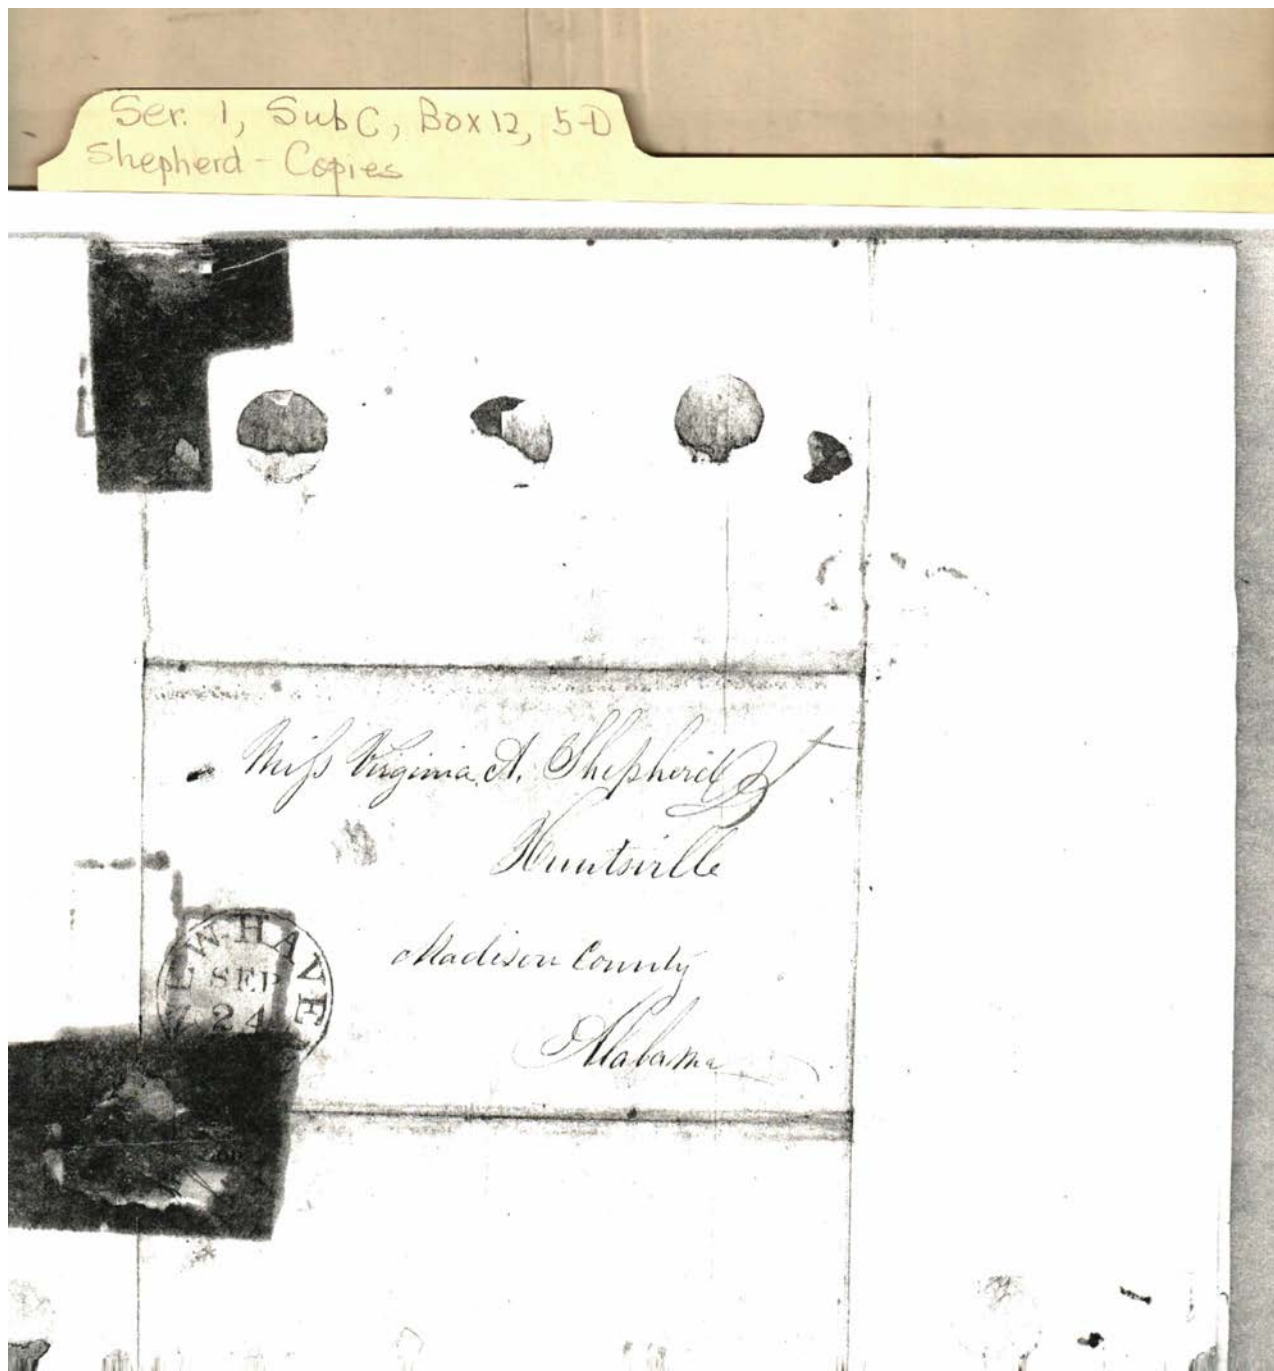 Ser. 1, Sub C, Box 12, 5-D
Shepherd - Copies
Miss Virginia A. Shepherd
Huntsville
Madison County
Alabama
W-HAVE
SEP
24